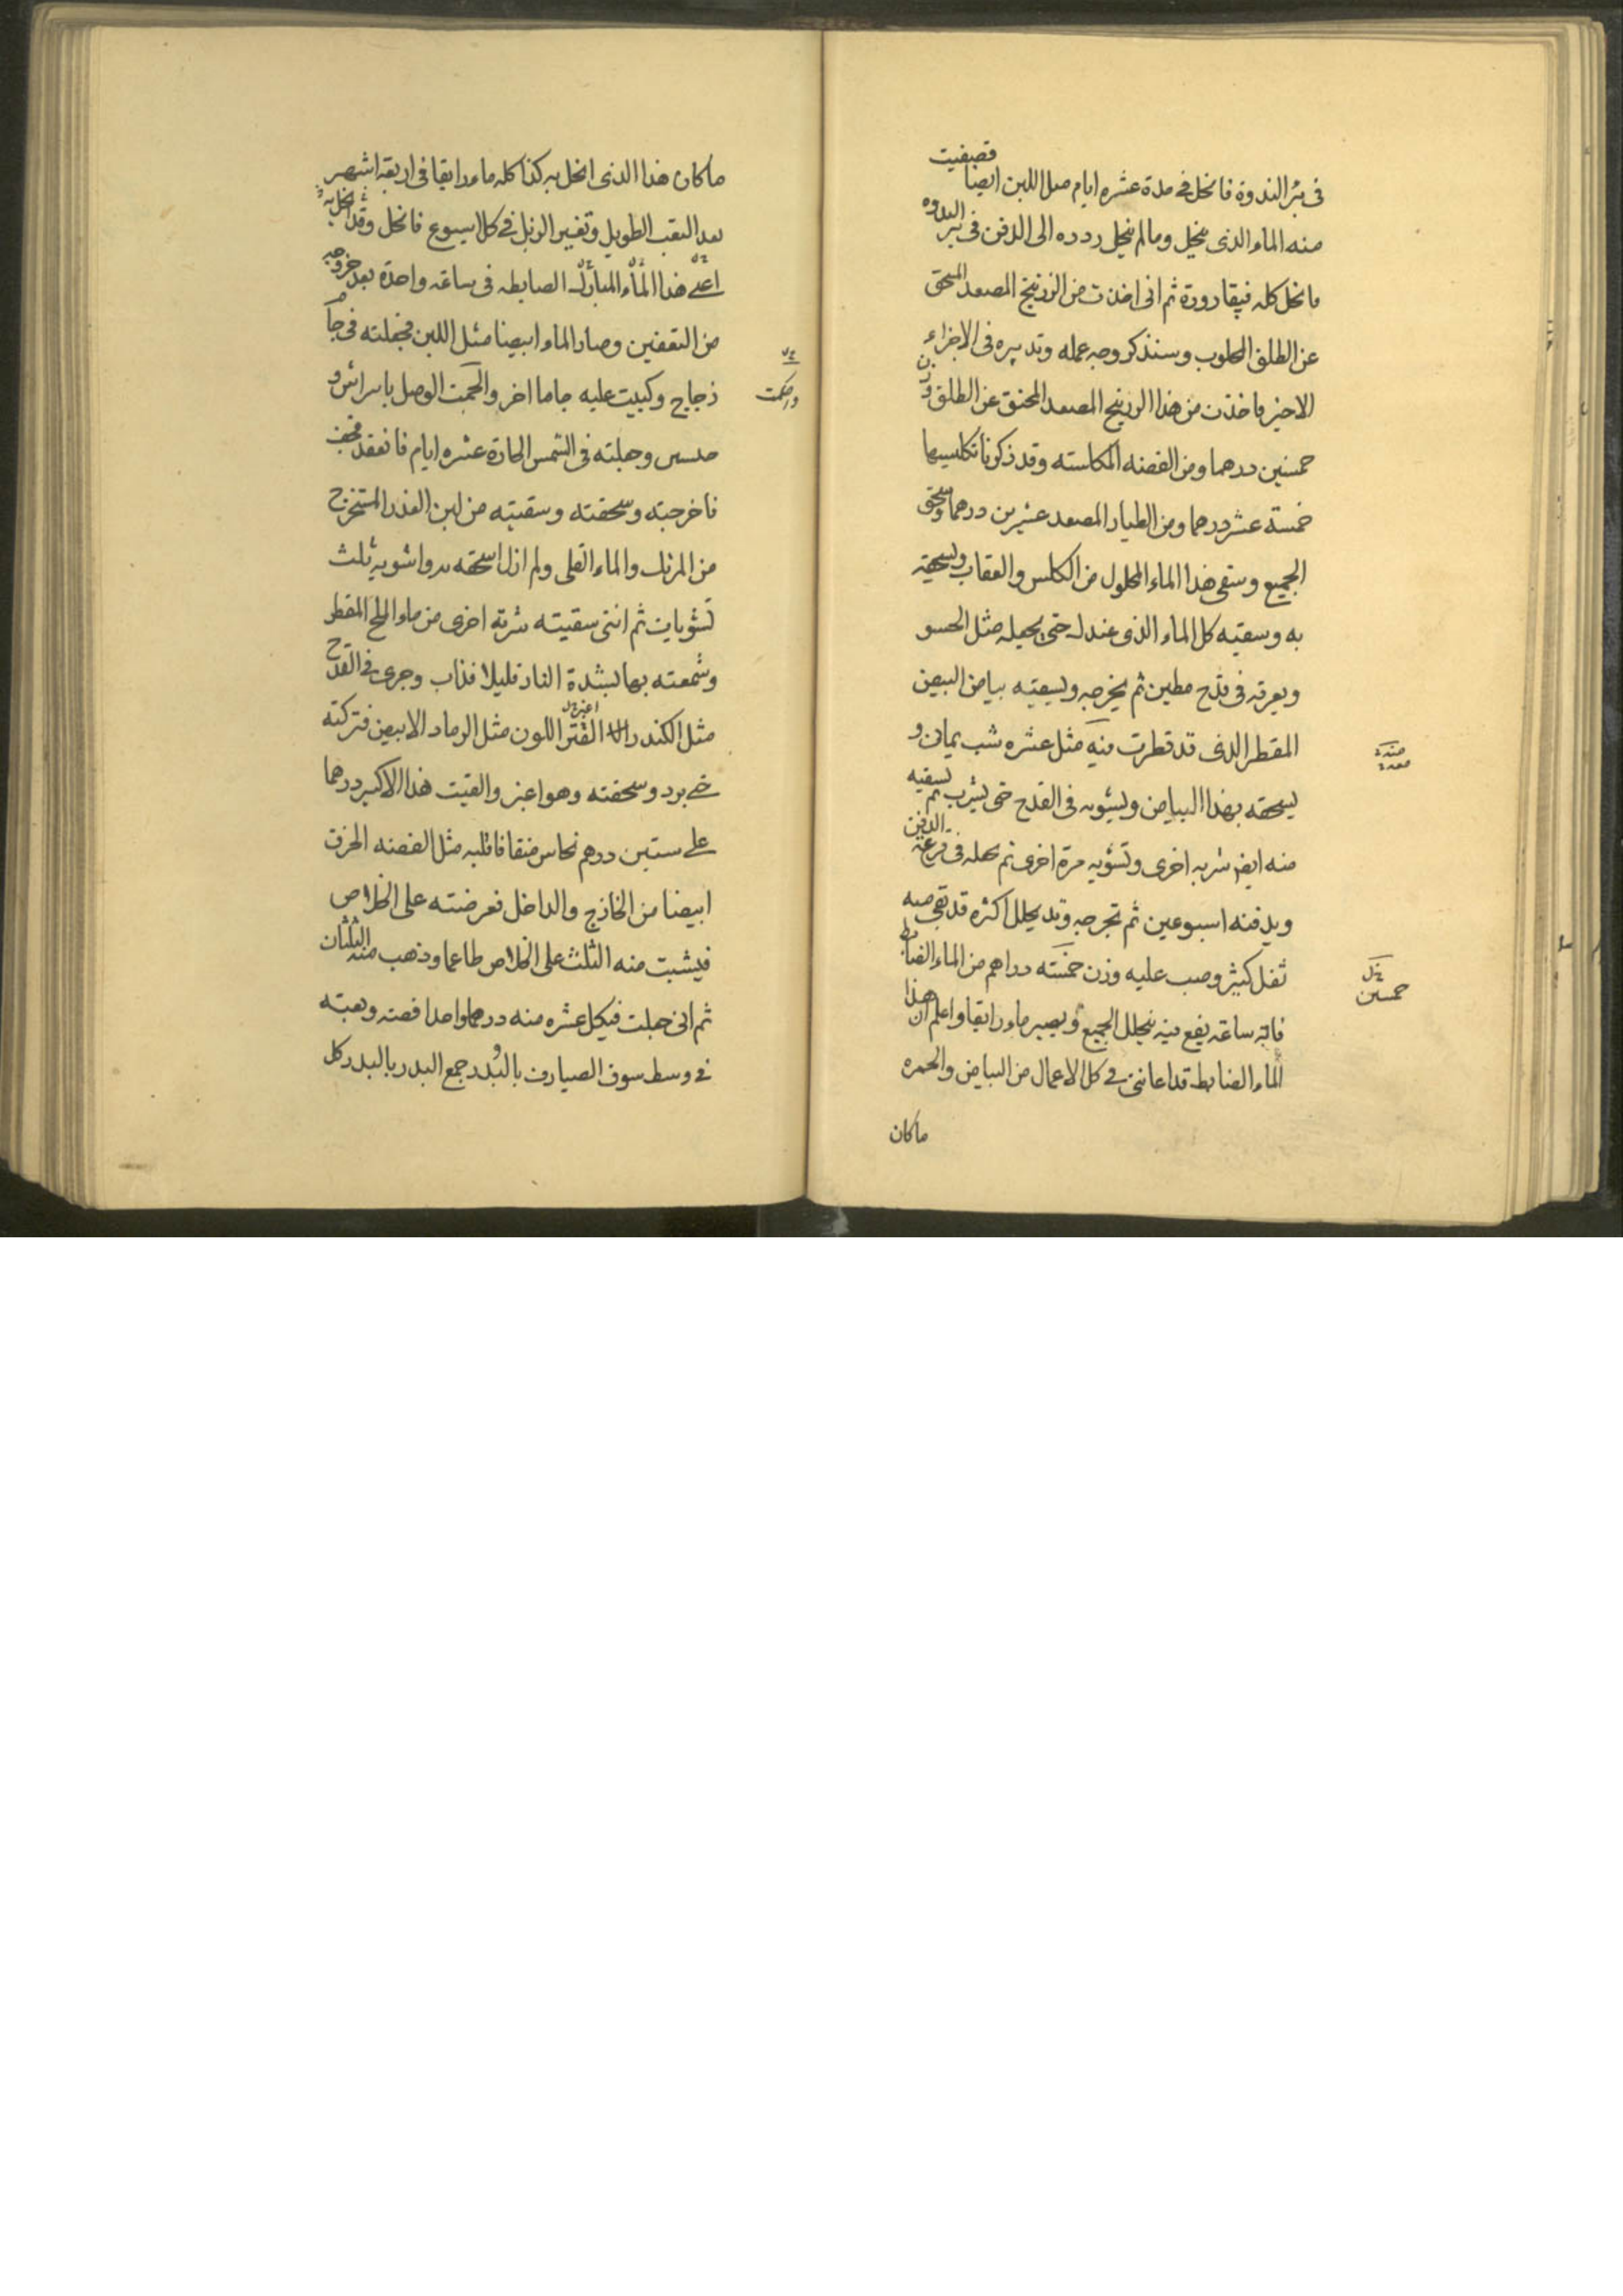 في بئر الندوة فانحل في مدة عشره ايام مثل اللبن ايضا فصفيت
منه الماء الذى ينحل ومالم ينحل ردده الى الدفن فى بئر الندوه
فانحل كله فيقارورة ثم انى اخذت من الزرنيخ المصعد
عن الطلق المحلوب وسنذكر وجه عمله وتدبيره فى الاجزاء
الاخير فاخذت من هذا الزرنيخ المصعد عن الطلق وزن
خمسين درهما ومن الفضه المكلسته وقد ذكرنا تكليسها
خمسة عشر درهما ومن الطيار المصعد عشرين درهما وسحق
الجميع وسقى هذا الماء المحلول من الكلس والعقاب ويسحقه
به وسقيه كل الماء الذى عندك حتى يجعله مثل الحسو
فى قدح مطين ثم يخرجه ويسقيه بياض البيض
المقطر الذى قد قطرت منه مثل عشره شب يمانى و
يسحقه بهذا البياض ويشويه فى القدح حتى يشرب ثم يسقيه
منه ايضا شربه اخرى وتشويه مرة اخرى ثم فى قرعة الدفن
ويدفنه اسبوعين ثم تخرجه وقد يحلل اكثره قد بقى منه
ثفل كثير وصب عليه وزن خمسته دراهم من الماء الضابط
فانه ساعه يقع فيه ينحلل الجميع ويصير ماء رايقا واعلم ان هذا
الماء الضابط قد اعاننى فى كل الاعمال من البياض والحمره
خمسين
ماكان
ماكان هذا الذى انحل به كذا كله ماء رايقا فى اربعة اشهر
بعد التعب الطويل وتغيير الزبل فى كل اسبوع فانحل وقد انحل به
اعنى هذا الماء المبارك الضابطه فى ساعه واحدة بعد خروجه
من التعفين وصار الماء ابيضا مثل اللبن فجعلته فى جام
زجاج وكبيت عليه جاما اخر والحمت الوصل باسراش و
وجعلته فى الشمس الحارة عشره ايام فانعقد فجف
فاخرجته وسحقته وسقيته من لبن العذرا المستخرج
من المرتك والماء القلى ولم ازل اسحقه واشويه ثلث
تشويات ثم اننى سقيته شربة اخرى من ماء الملح المقطر
وشمعته بها بشدة النار قليلا فذاب وجرى فى القدح
مثل الكندر اللون مثل الرماد الابيض فتركته
حتى برد وسحقته وهو اغبر والقيت هذا الاكسير درهما
على ستين درهم نحاس منقا فاقلبه مثل الفضه الحرق
ابيضا من الخارج والداخل فعرضته على الخلاص
فيثبت منه الثلث على الخلاص طاعما وذهب منه الثلثان
ثم انى جعلت فيكل عشره منه درهما واحدا فضه وبعته
فى وسط سوق الصيارف بالبدر وجمع البدر بالبدر كل